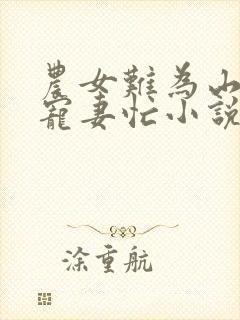 農女難為山
寵妻忙小說
涂重航